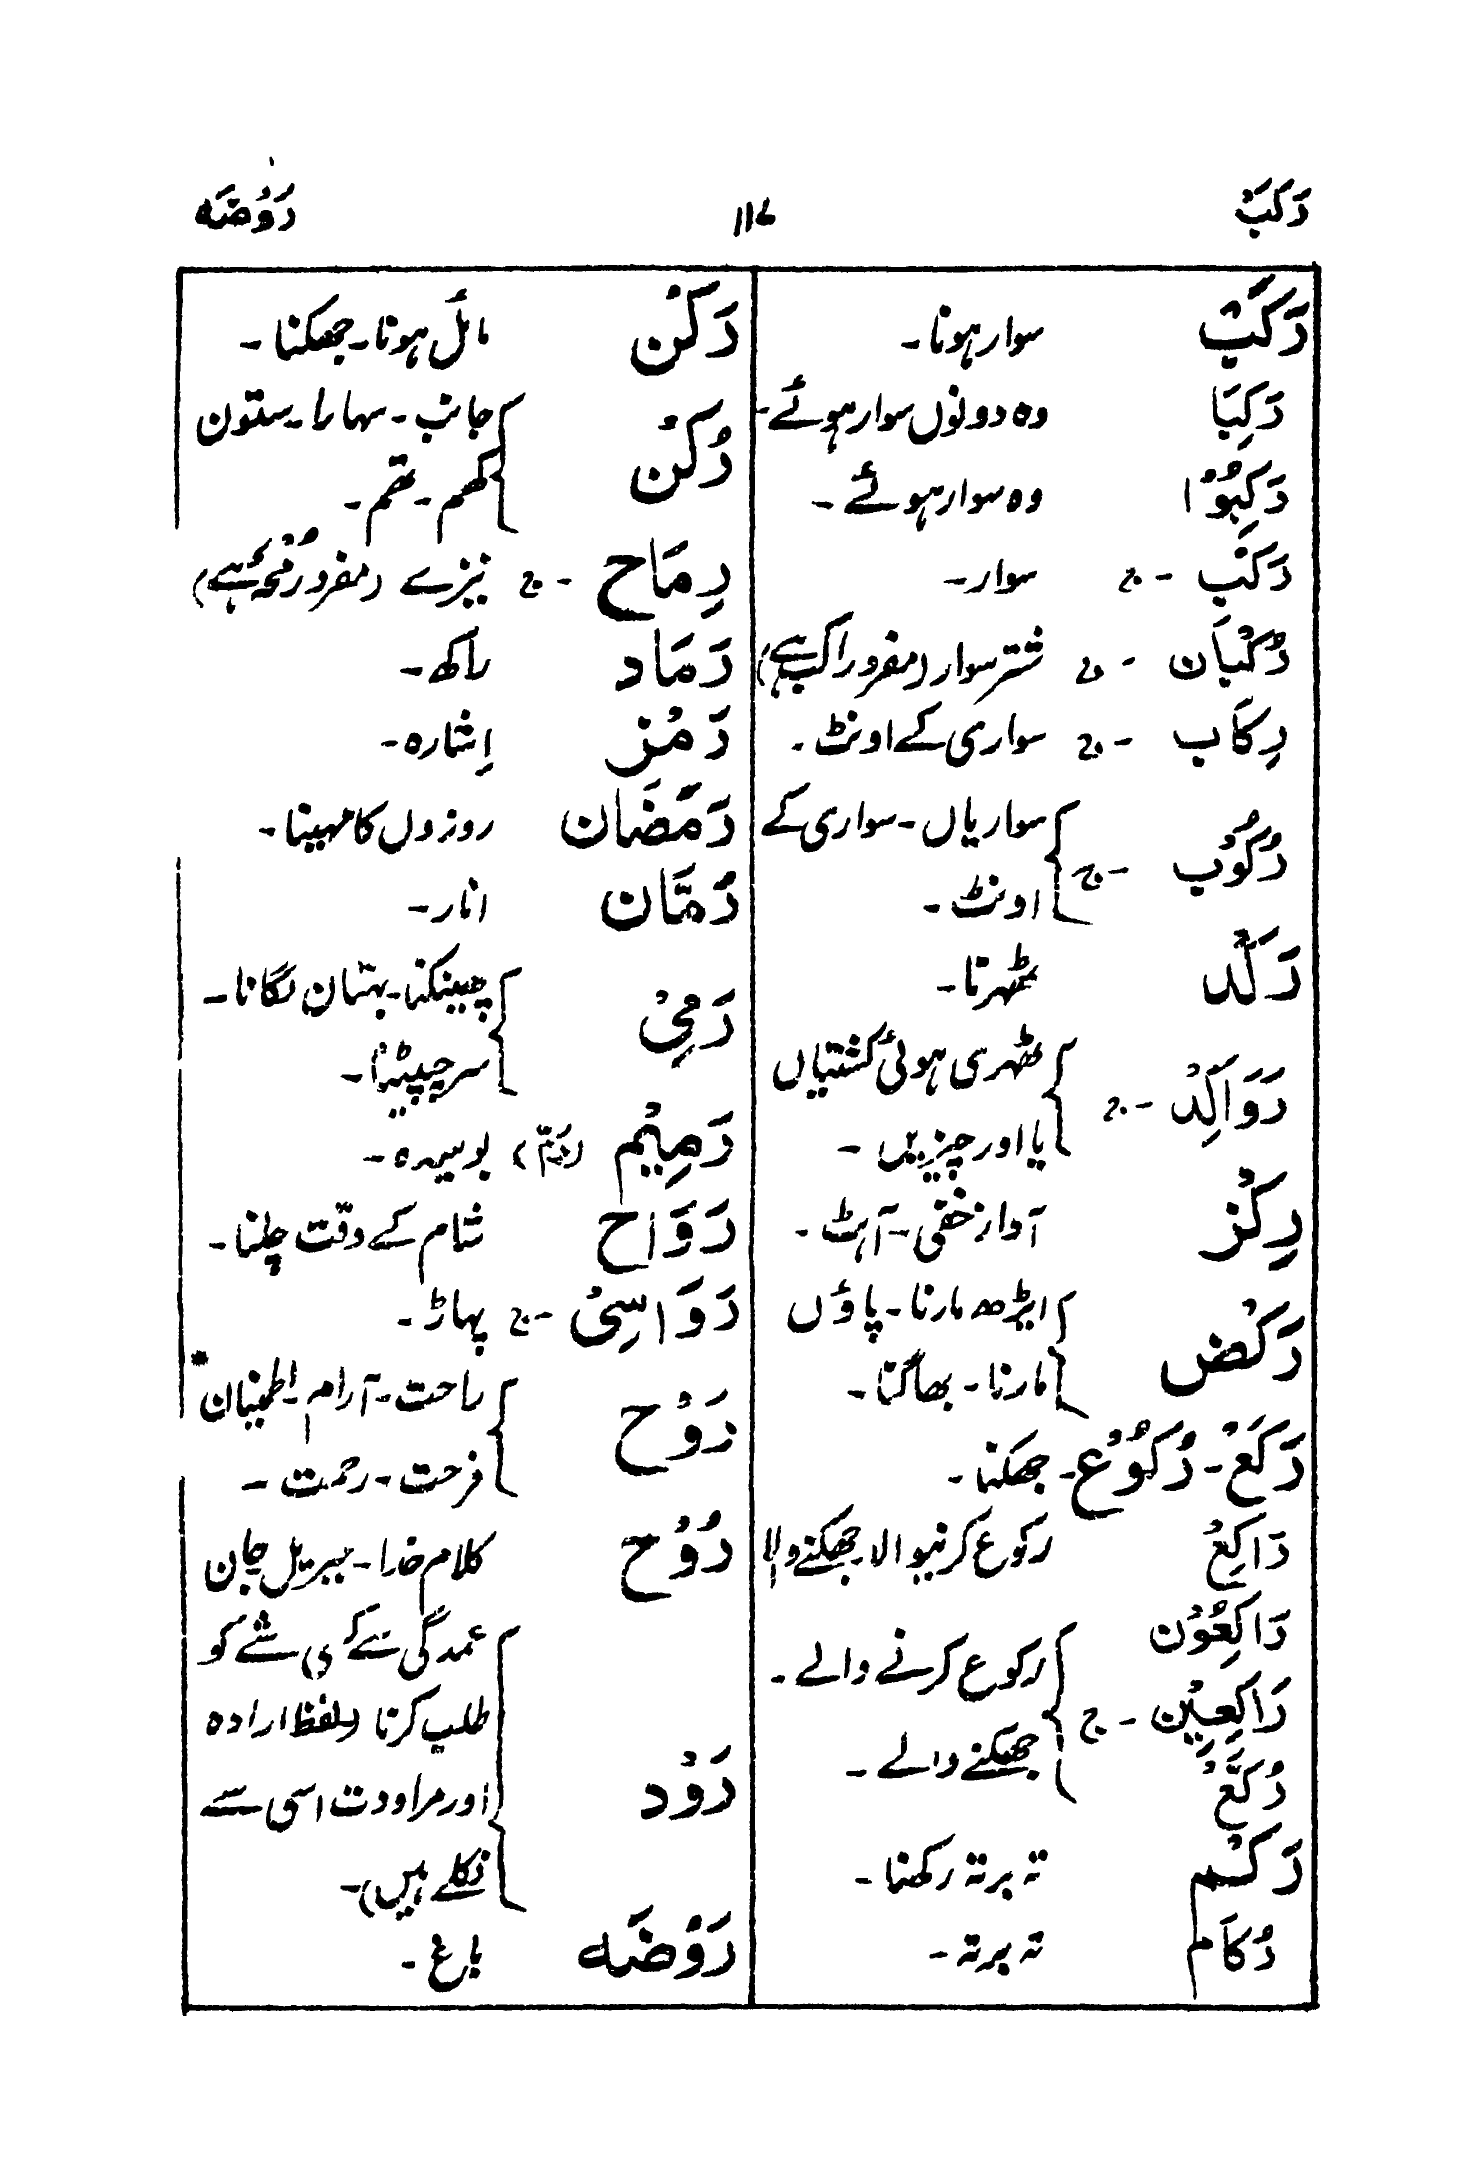 رَكَبَ ۱۱۷ رَوْضَه
رَكَبَ سوار ہونا۔
رَكِبَا وہ دونوں سوار ہوئے۔
رَكِبُوْا وہ سوار ہوئے۔
رَكْب - ج سوار۔
رُكْبَان - ج شتر سوار (مفرد راکب ہے)
رِكَاب - ج سواری کے اونٹ۔
رُكُوْب - ج سواریاں۔ سواری کے
اونٹ۔
رَكَدَ ٹھہرنا۔
رَوَاكِدْ - ج ٹھہری ہوئی کشتیاں
یا اور چیزیں۔
رِكْز آواز خفی۔ آہٹ۔
رَكْض ایڑھ مارنا۔ پاؤں
مارنا۔ بھاگنا۔
رَكَعَ۔ رُكُوْع۔ جھکنا۔
رَاكِعْ رکوع کرنیوالا۔ جھکنے والا
رَاكِعُوْن رکوع کرنے والے۔
رَاكِعِيْن - ج
جھکنے والے۔
رُكَّعْ
رَكَمَ تہ برتہ رکھنا۔
رُكَام تہ برتہ۔
رَكَنَ مائل ہونا۔ جھکنا۔
رُكْن جانب۔ سہارا۔ ستون
کھم۔ تھم۔
رِمَاح - ج نیزے (مفرد رُمْحٌ ہے)
رَمَاد راکھ۔
رَمْز اِشارہ۔
رَمَضَان روزوں کا مہینا۔
رُمَّان انار۔
رَمِيْ پھینکنا۔ بہتان لگانا۔
سرچیپٹنا۔
رَمِيْم (رَمّ) بوسیدہ۔
رَوَاح شام کے وقت چلنا۔
رَوَاسِيْ - ج پہاڑ۔
رَوْح راحت۔ آرام۔ اطمینان
فرحت۔ رحمت۔
رُوْح کلام خدا۔ جبریل جان
رَوْد عمدگی سے کسی شے کو
طلب کرنا (لفظ ارادہ
اور مراودت اسی سے
نکلے ہیں)۔
رَوْضَه باغ۔